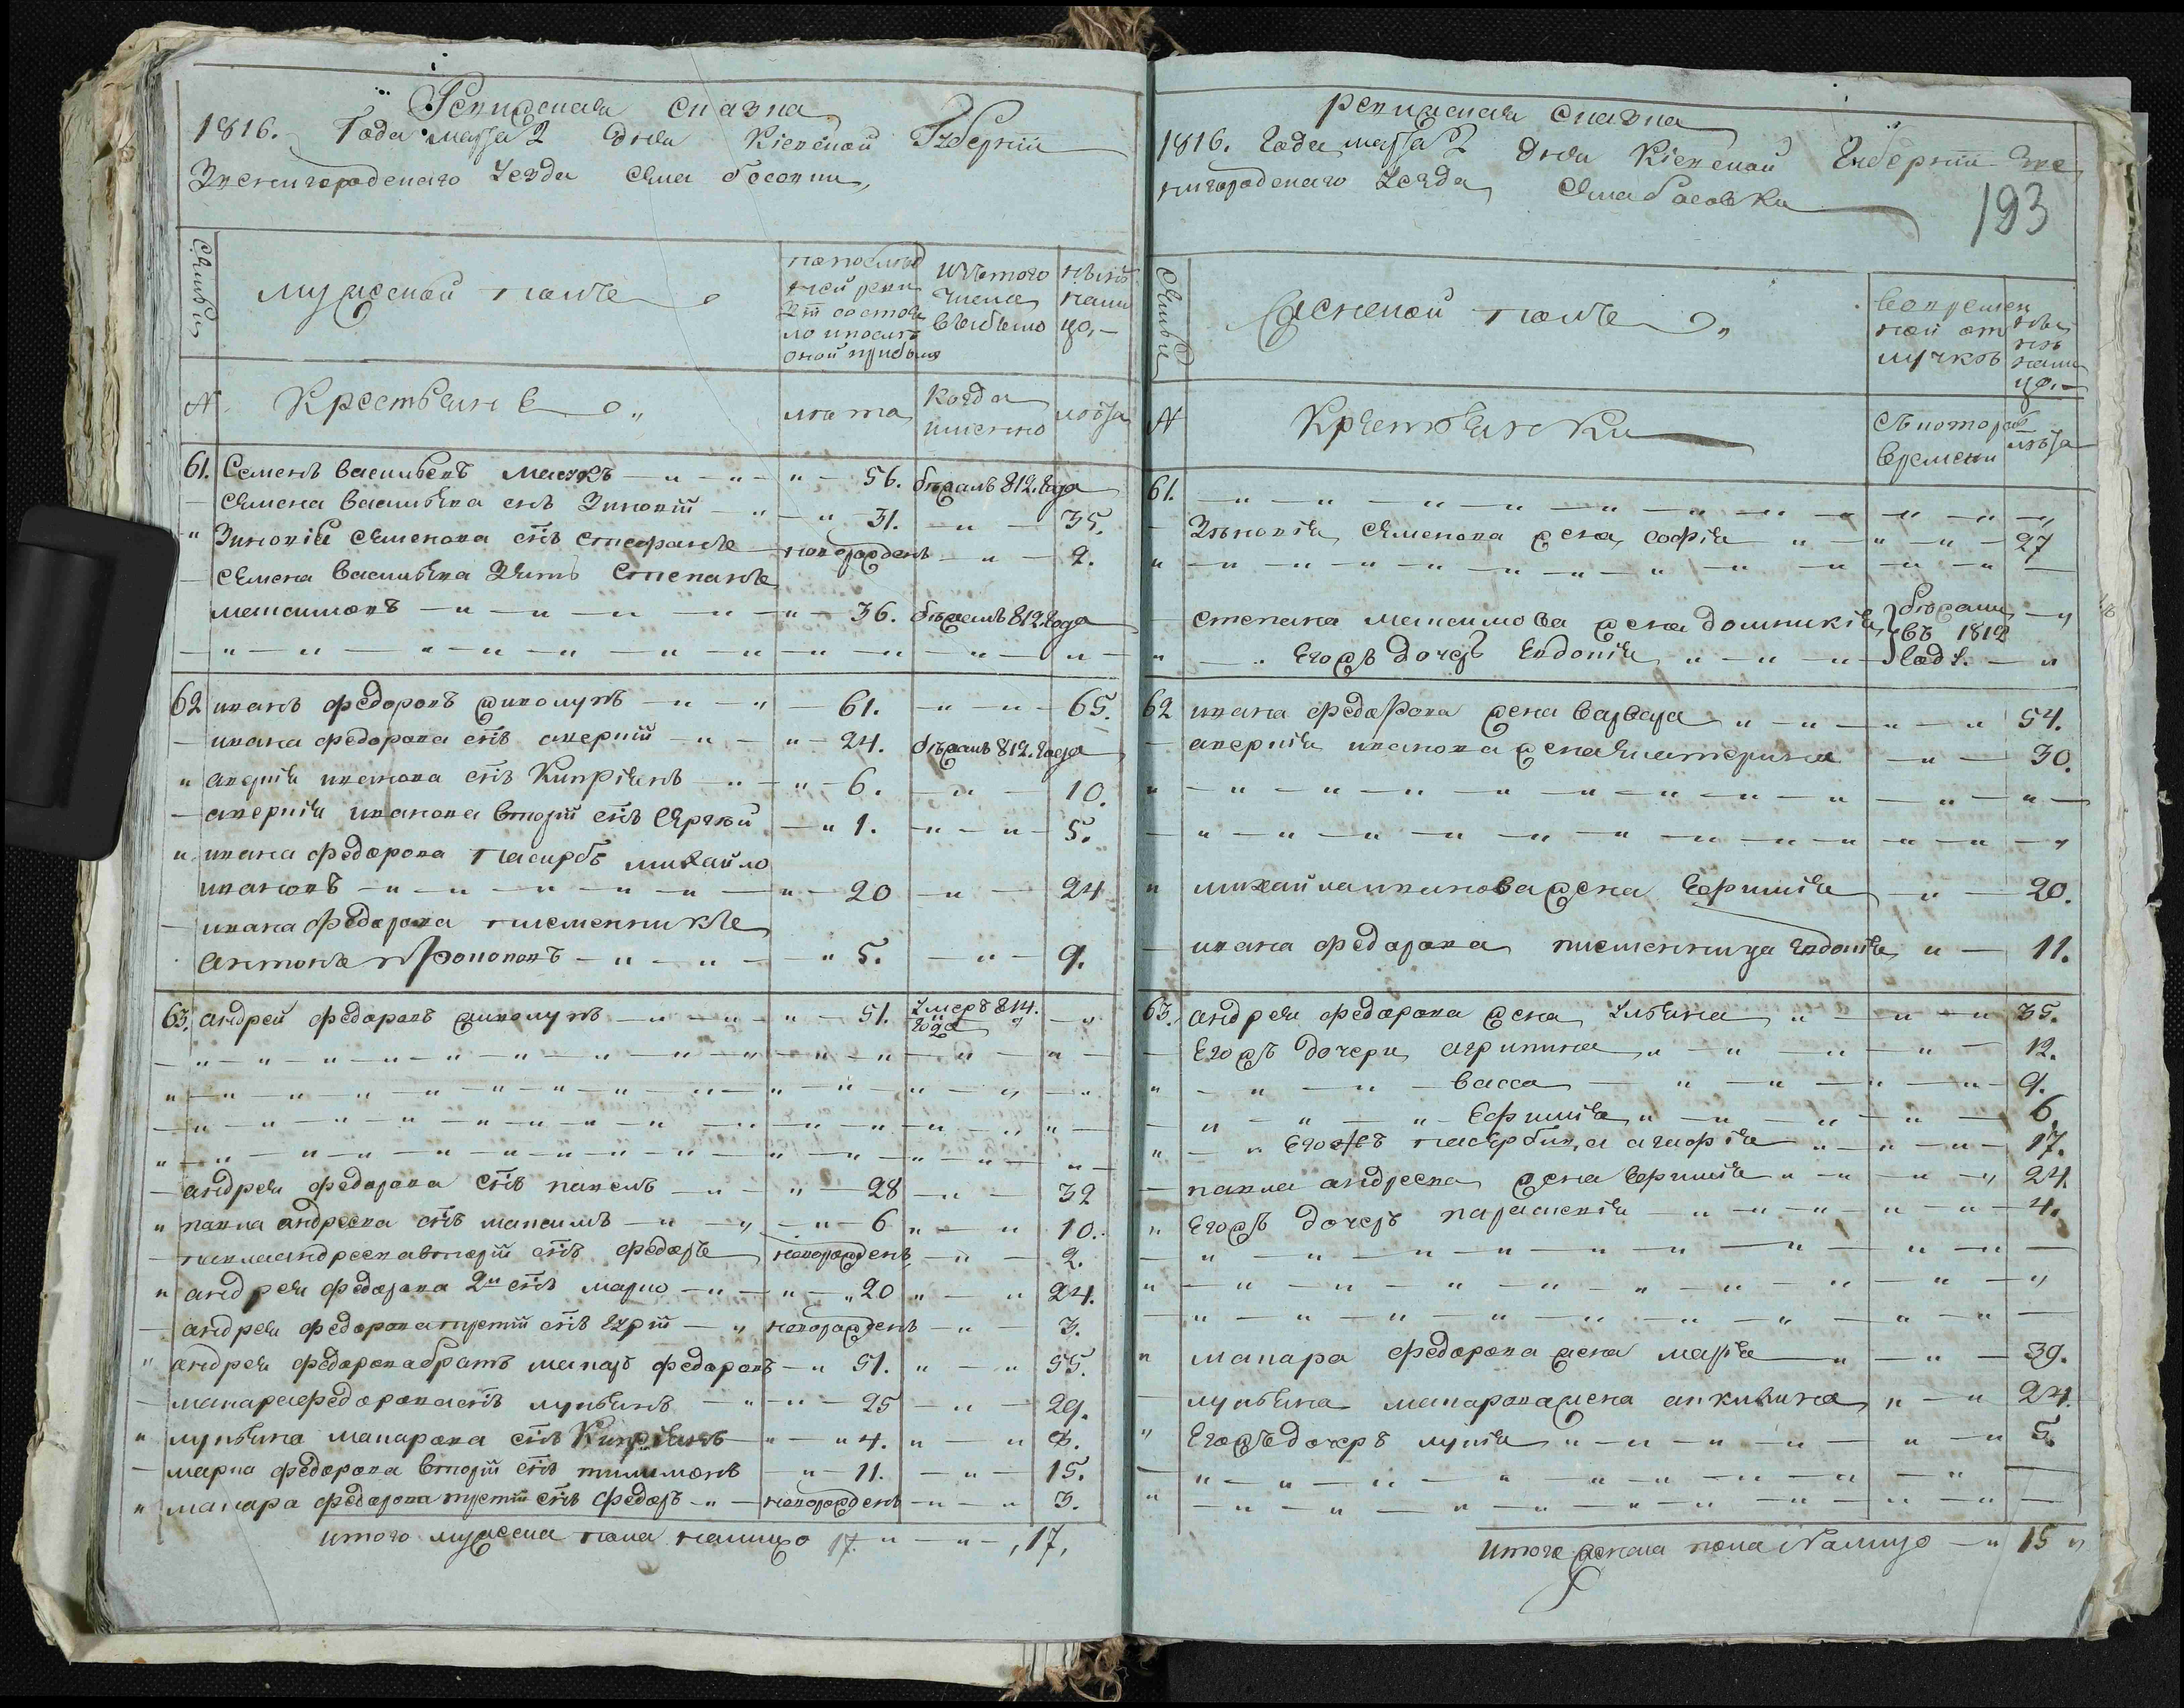 Ревизская сказка
1816. Года марта 2 дня Кіевской Губерніи
Звенигородскаго уезда села босовки
семьи
мужеской полъ
напоследней ревизіи состояло ипосле оной прибыло
изътого числа выбыло
ныне налицо
№ Крестьяне
лета
когда имянно
лета
61. Семенъ васильевъ 56. бежалъ 812. года
семена васильева снъ Зиновій 31. 35.
Зиновія семенова снъ стефанъ новорожденъ 2.
семена васильева зять степанъ
максимовъ 36. бежалъ 812. года
62 иванъ федоровъ 61. 65.
ивана федорова снъ аверкій 24. бежалъ 812. года
аверкія иванова снъ Кипріянъ 6. 10.
аверкія иванова вторій снъ сергей 1. 5.
ивана федорова пасирбъ михайло
ивановъ 20 24
ивана федорова племенникъ
антонъ 5. 9.
63. андрей федоровъ 51. умеръ 814. года
андрея федорова снъ павелъ 28 32
павла андреева снъ максимъ 6 10.
павла андреева вторій снъ федоръ новорожденъ 2.
андрея федорова 2й снъ марко 20 24.
андрея федорова третій снъ юрій новорожденъ 3.
андрея федорова братъ макаръ федоровъ 51. 55.
макара федорова снъ лукьянъ 25 29.
лукьяна макарова снъ Кипріянъ 4. 8.
марка федорова вторій снъ филимонъ 11. 15.
макара федорова третій снъ федоръ новорожденъ 3.
итого мужеска пола налицо 17. 17,
ревизская сказка
1816. года марта 2 дня Кіевской Губерніи Зве
нигородскаго уезда села босовки
193
семьи
женской полъ
вовременной отлучке
ныне налицо
№ Крестьянки
съкоторого времени
лета
61.
Зеновія семенова жена софія 27
степана максимова жена домникія бежали
его жъ дочеръ евдокія въ 1812 год.
62 ивана федорова жена варвара 54.
аверкія иванова жена екатерина 30.
михайла иванова жена ефимія 20.
ивана федорова племенница евдокія 11.
63. андрея федорова жена ульяна 35.
его жъ дочери агрипина 12.
васса 9.
ефимія 6.
его жъ пасербица агафія 17.
павла андреева жена ефимія 24.
его жъ дочеръ параскевія 4.
макара федорова жена марія 39.
лукьяна макарова жена акилина 24.
его жъ дочеръ лукія 5.
итого женска пола налицо 15